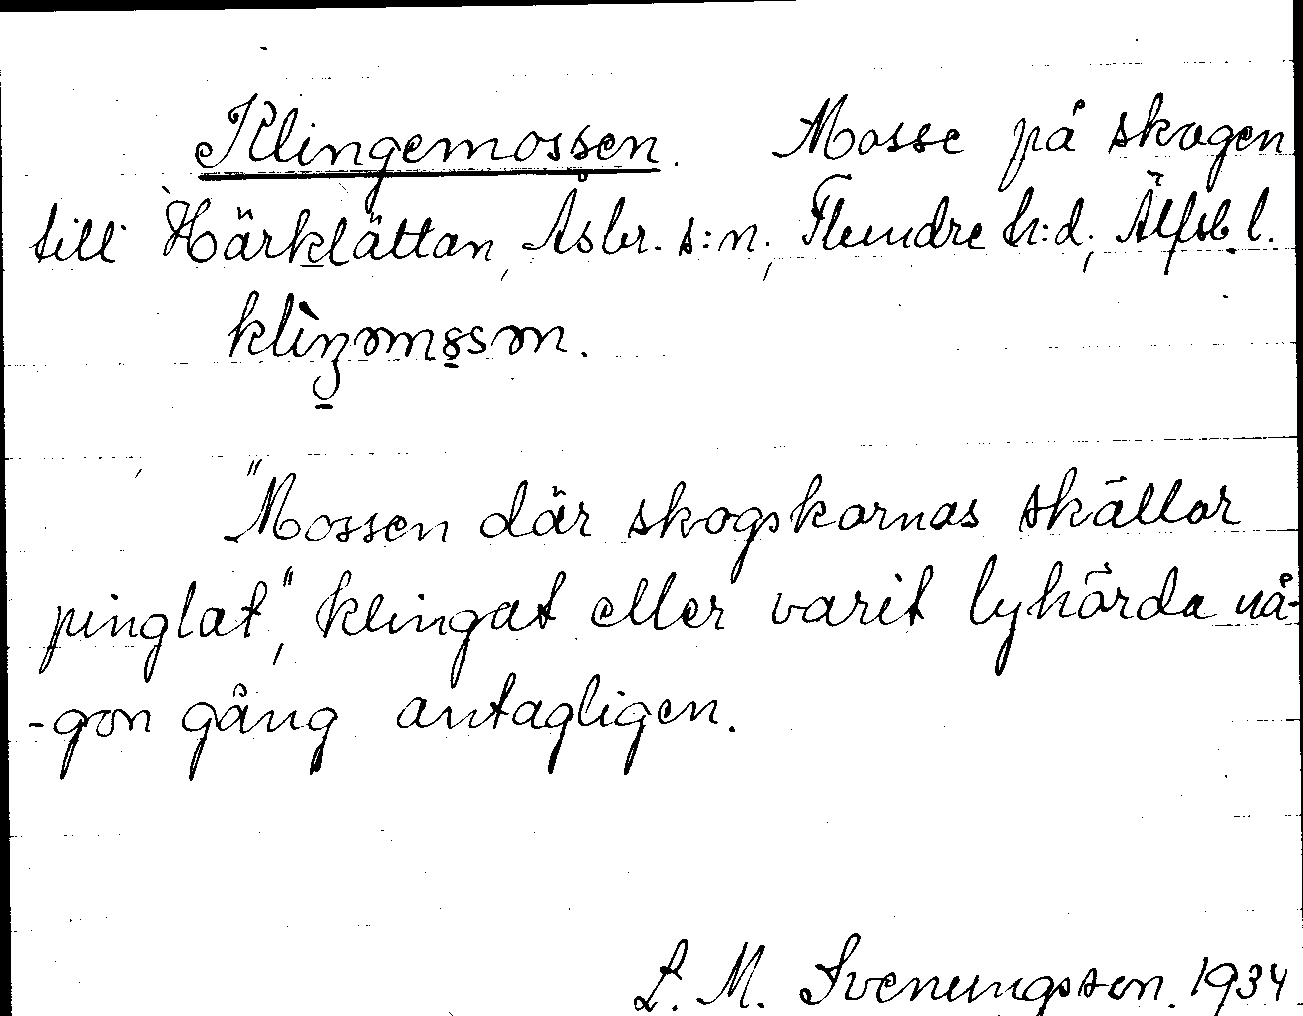 Klingemossen. Mosse på skogen
till Härklättan, Åsbr. s:n; Flundre h:d; Älfsb. l.

"Mossen där skogskornas skällor
pinglat", klingat eller varit lyhörda nå-
-gon gång antagligen.
L. M. Svenungsson. 1934